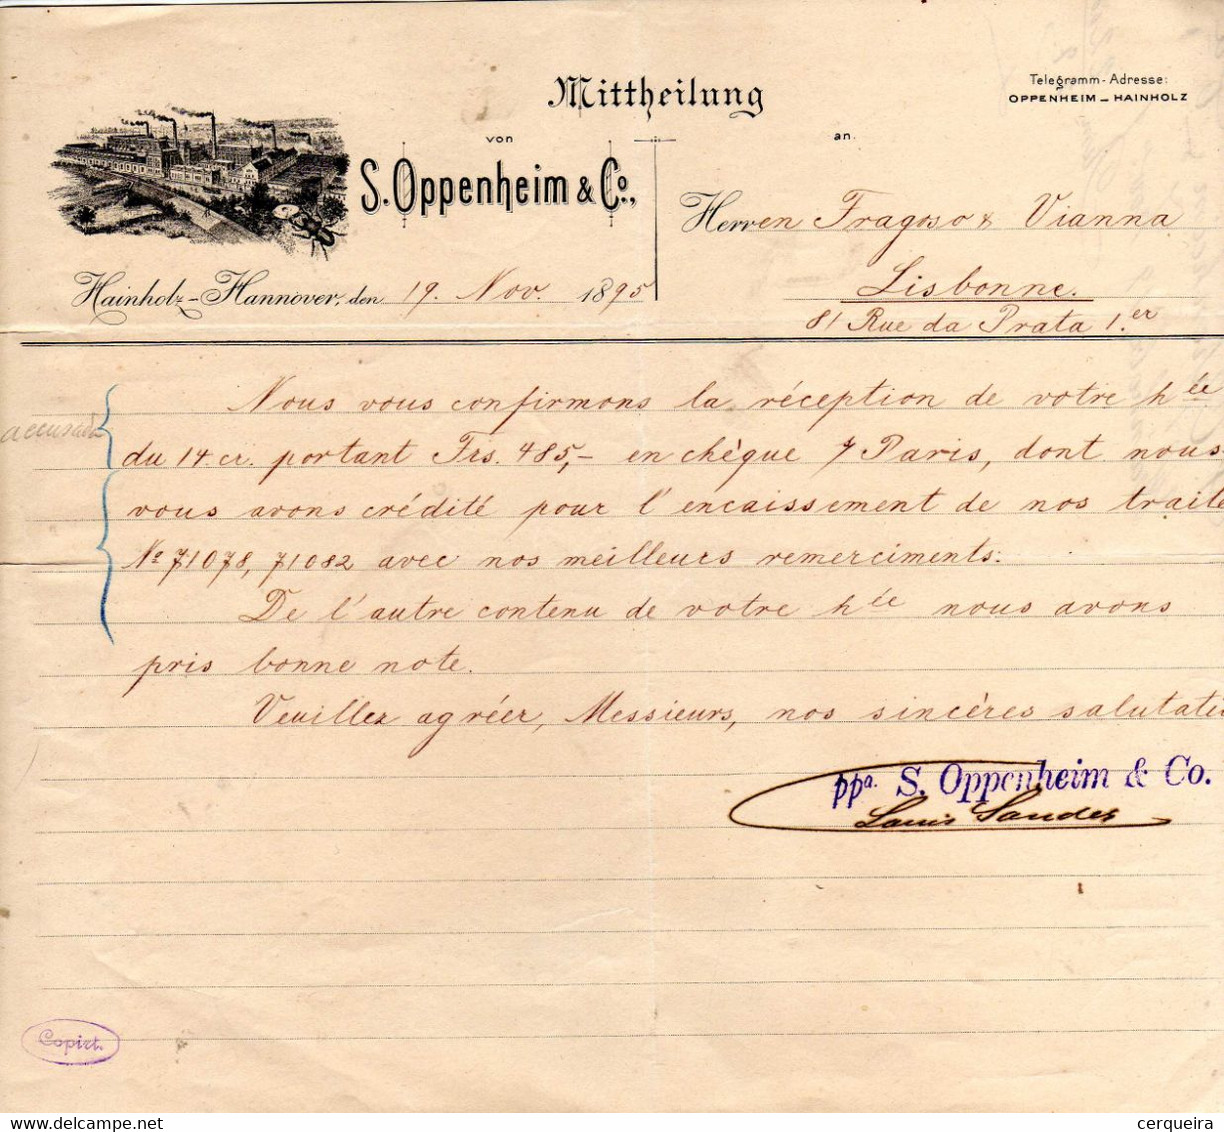 Mittheilung
Telegramm-Adresse:
OPPENHEIM - HAINHOLZ
von
an
S. Oppenheim & Co.,
Herren Fragoso & Vianna
Lisbonne.
81 Rue da Prata 1.er
Hainholz-Hannover, den 19. Nov. 1895
Nous vous confirmons la réception de votre hée
du 14. cr. portant Frs. 485,- en chèque s/ Paris, dont nous
vous avons crédité pour l'encaissement de nos traite
No 71078, 71082 avec nos meilleurs remerciments.
De l'autre contenu de votre hée nous avons
pris bonne note.
Veuillez agréer, Messieurs, nos sincères salutatio
ppa. S. Oppenheim & Co.
Louis Sander
Copirt.
cerqueira